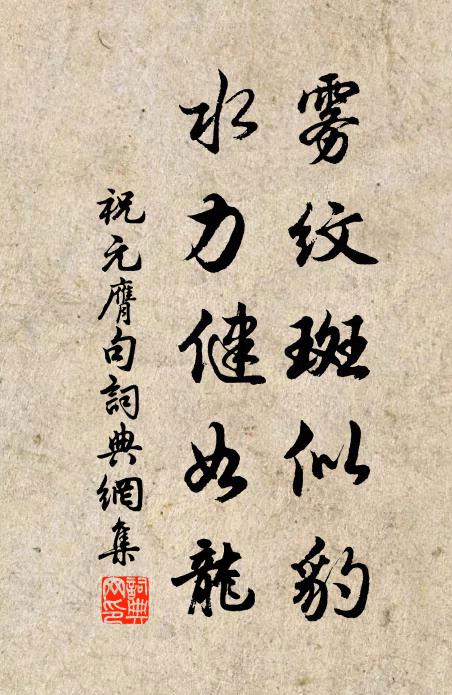 雾纹斑似豹
水力健如龍
祝元膺句詞典網集
詞典
网印